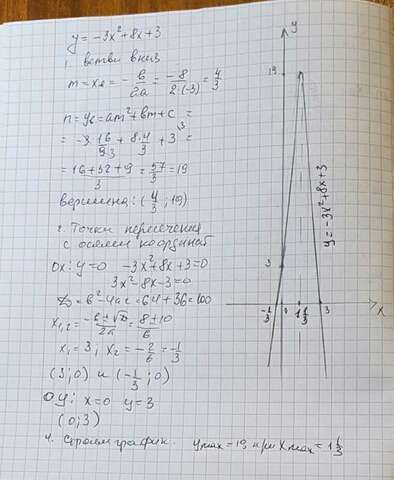 y = -3x² + 8x + 3
1. ветви вниз
m = x₀ = - b/2a = -8/2·(-3) = 4/3
n = y₀ = am² + bm + c =
= -3·16/9 3 + 8·4/3 + 3 \3 =
= 16+32+9/3 = 57/3 = 19
вершина: (4/3; 19)
2. Точки пересечения
с осями координат
ox: y = 0 -3x² + 8x + 3 = 0
3x² - 8x - 3 = 0
D = b² - 4ac = 64 + 36 = 100
x₁,₂ = -b ± √D/2a = 8 ± 10/6
x₁ = 3; x₂ = -2/6 = -1/3
(3; 0) и (-1/3; 0)
oy: x = 0 y = 3
(0; 3)
4. Строим график. y max = 19 при x max = 1 1/3
y
19
3
-1/3 0 1 1/3 3 x
y = -3x² + 8x + 3